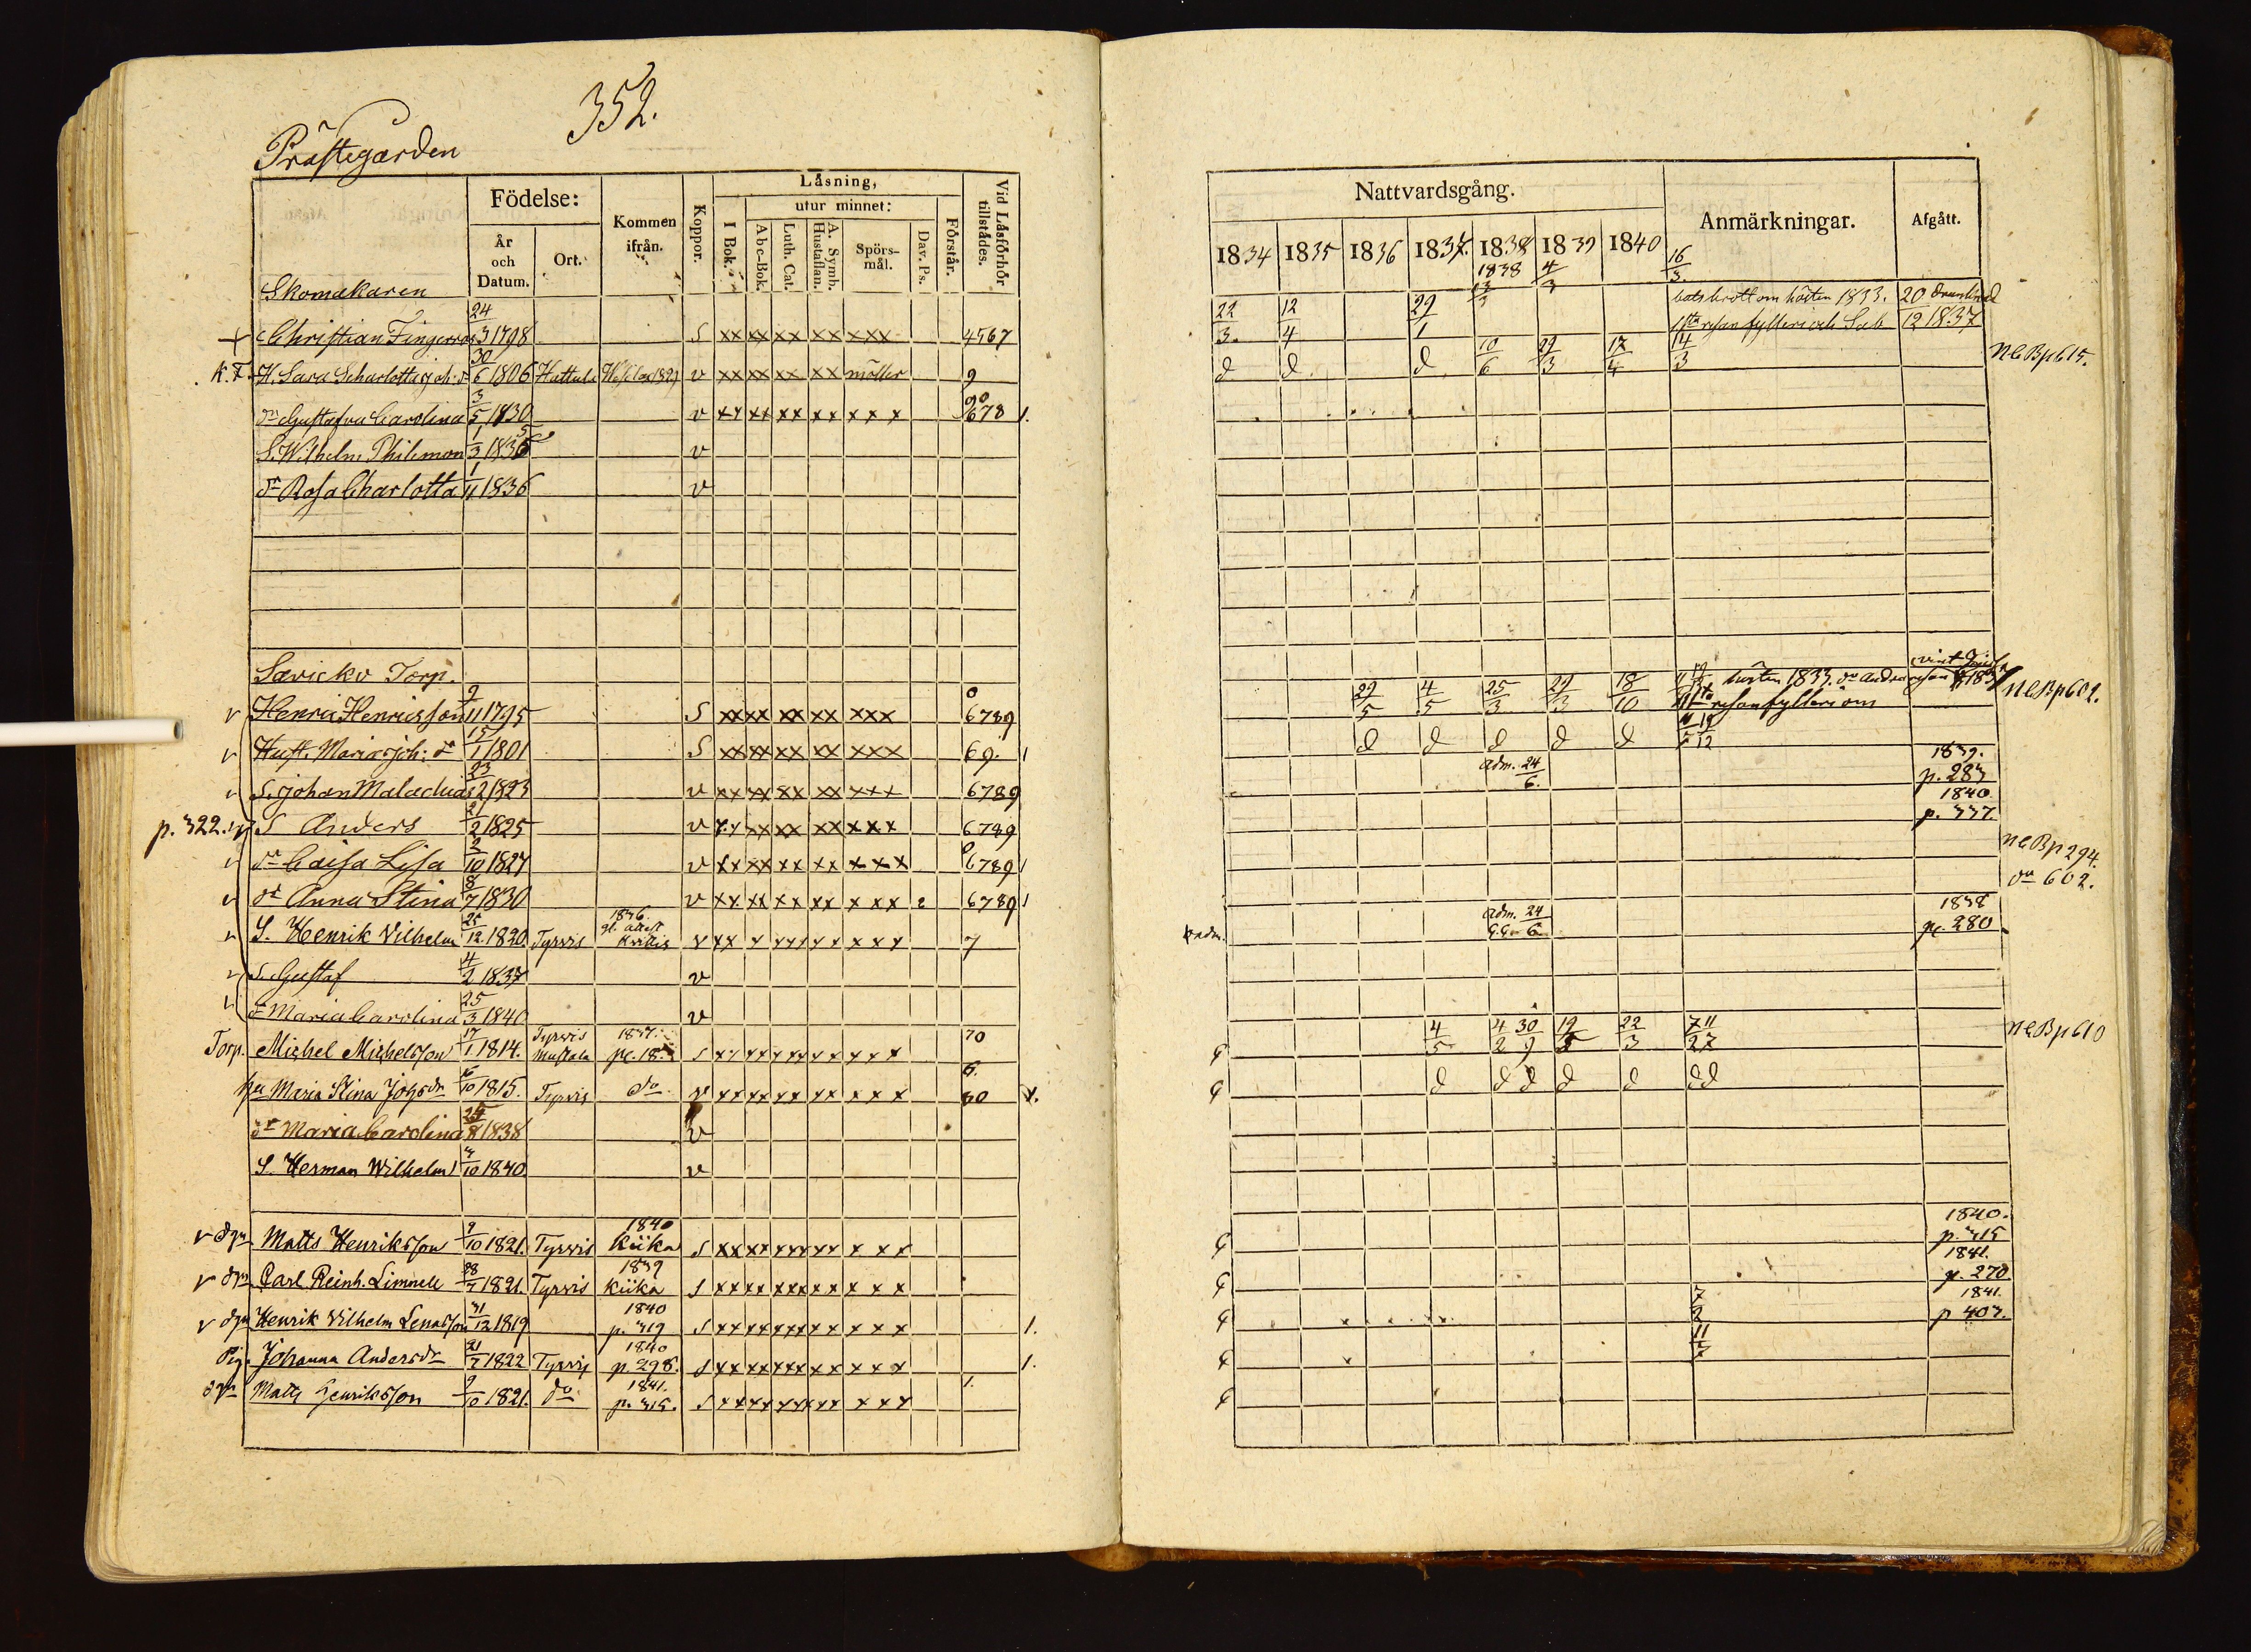 352.
Prästegården
Födelse:
År och Datum.
Ort.
Kommen ifrån.
Koppor.
Läsning,
I Bok.
utur minnet:
Abc-Bok.
Luth. Cat.
A. Symb. Hustaflan.
Spörs-mål.
Dav. Ps.
Förstår.
Vid Läsförhör tillstädes.
Nattvardsgång.
1834 1835 1836 1837. 1838 1839 1840
Anmärkningar.
Afgått.
Skomakaren
Christian 24/3 1798 S xx xx xx xx xxx 4567 22/3. 12/4 29/1 1838 13/3 4/3 16/3. hösten 1833. 20/12 1837
K. F. H. Sara Scharlotta Joh: dr 30/6 1806 Hattula v xx xx xx xx möller 9 d d d 10/6 29/3 17/4 14/3 NCBp615.
dr Gustafva Carolina 3/5 1830 v xx xx xx xx x x x 90 678 1.
S. Wilhelm Philemon 1/3 1835 v
dr Rosa Charlotta 1/11 1836 v
Sævickv Torp.
v Henric Henricsson 9/11 1795 S xx xx xx xx xxx 0 6789 29/5 4/5 25/3 29/3 18/10 hösten 1833. NCBp602.
resan fylleri om
v Hust. Maria Joh: dr 15/1 1801 S xx xx xx xx xxx 69. 1 d d d d d
v S. Johan Malachias 23/2 1823 v xx xx xx xx xxx 6789 adm. 24/6. 1839. p. 283
p. 322. v S Anders 2/2 1825 v xx xx xx xx xxx 6789 1840. p. 337.
v dr Caisa Lisa 2/10 1827 v xx xx xx xx x x x 6789 1 NCBp294.
v dr Anna Stina 8/7 1830 v xx xx xx xx x xx 2 6789 1 do 602.
v S. Henrik Vilhelm 25/12 1820. Tyrvis 1836. v xx x xxx x x x x 7 adm. 24/6 1838 p. 280
v S. Gustaf 4/2 1837 v
v dr Maria Carolina 25/3 1840 v
Torp. Michel Michelsson 17/1 1814. Tyrvis Mustala 1837. p. 18. s xx xx xx xx x x x 70 4/5 4/2 30/9 19/5 22/3 7/2 11/7 NCBp610
hu Maria Stina Johsdr 6/10 1815. Tyrvis do v xx xx xx xx x x x 80 x. d d d d d dd
dr Maria Carolina 24/8 1838 v
S. Herman Wilhelm 3/10 1840. v
v dgn Matts Henriksson 9/10 1821. Tyrvis 1840 Kiika s xx xx xx xx x x x 1840. p. 315
v dgn Carl Reinh. Limnell 28/7 1821. Tyrvis 1839 Kiika s xx xx xx xx x x x 1841. p. 270.
v dgn Henrik Vilhelm 31/12 1819 1840 p. 319 s xx xx xx xx x x x 1. 7/2 1841. p 403.
Pig. Johanna Andersdr 21/7 1822 Tyrvis 1840 p. 298. s xx xx xx xx x x x 1. 11/7
dgn Matts Henriksson 9/10 1821. do 1841. p. 315. s xx xx xx xx x x x 1.